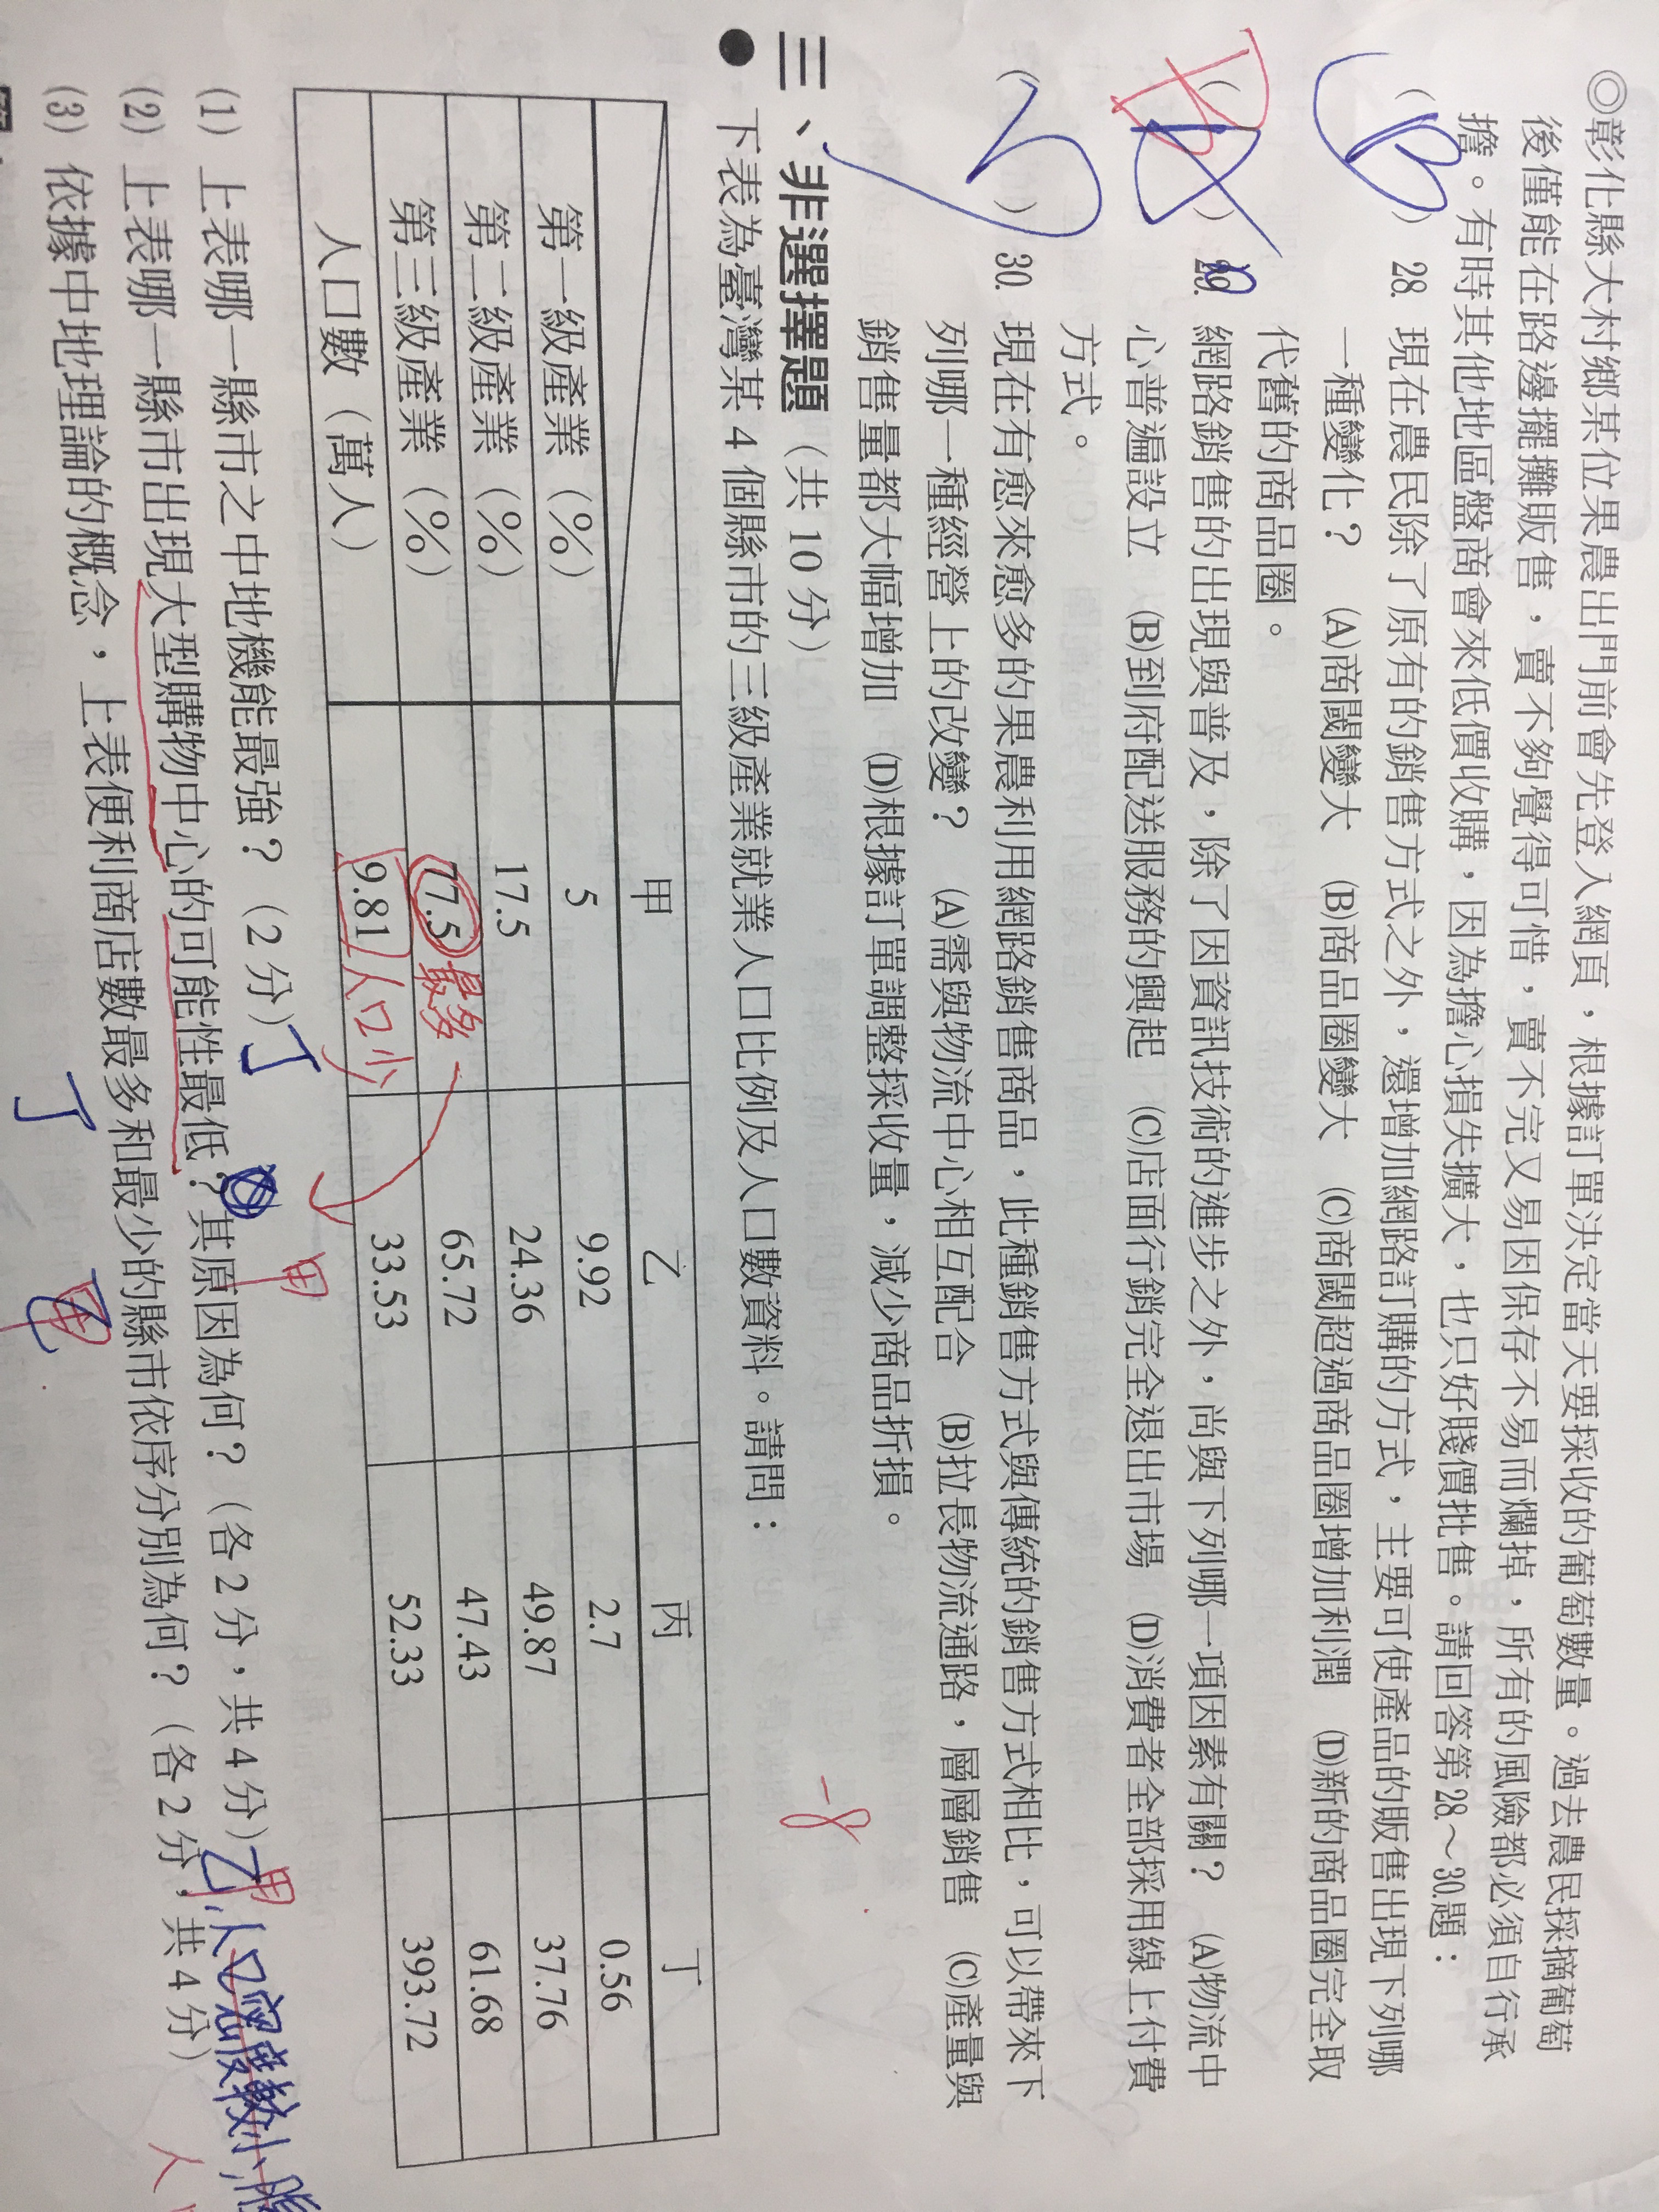 ◎彰化縣大村鄉某位果農出門前會先登入網頁，根據訂單決定當天要採收的葡萄數量。過去農民採摘葡萄
後僅能在路邊擺攤販售，賣不夠覺得可惜，賣不完又易因保存不易而爛掉，所有的風險都必須自行承
擔。有時其他地區盤商會來低價收購，因為擔心損失擴大，也只好賤價批售。請回答第28.～30.題：
（B）28. 現在農民除了原有的銷售方式之外，還增加網路訂購的方式，主要可使產品的販售出現下列哪
一種變化？ (A)商閾變大 (B)商品圈變大 (C)商閾超過商品圈增加利潤 (D)新的商品圈完全取
代舊的商品圈。
（A）29. 網路銷售的出現與普及，除了因資訊技術的進步之外，尚與下列哪一項因素有關？ (A)物流中
心普遍設立 (B)到府配送服務的興起 (C)店面行銷完全退出市場 (D)消費者全部採用線上付費
方式。
（ ）30. 現在有愈來愈多的果農利用網路銷售商品，此種銷售方式與傳統的銷售方式相比，可以帶來下
列哪一種經營上的改變？ (A)需與物流中心相互配合 (B)拉長物流通路，層層銷售 (C)產量與
銷售量都大幅增加 (D)根據訂單調整採收量，減少商品折損。
三、非選擇題（共10分）
-8
● 下表為臺灣某4個縣市的三級產業就業人口比例及人口數資料。請問：
甲 乙 丙 丁
第一級產業（%） 5 9.92 2.7 0.56
第二級產業（%） 17.5 24.36 49.87 37.76
第三級產業（%） 77.5 最多 65.72 47.43 61.68
人口數（萬人） 9.81 人口少 33.53 52.33 393.72
(1) 上表哪一縣市之中地機能最強？（2分）丁 甲
(2) 上表哪一縣市出現大型購物中心的可能性最低？其原因為何？（各2分，共4分）乙，人口密度較小， 甲
(3) 依據中地理論的概念，上表便利商店數最多和最少的縣市依序分別為何？（各2分，共4分）
丁 乙 甲